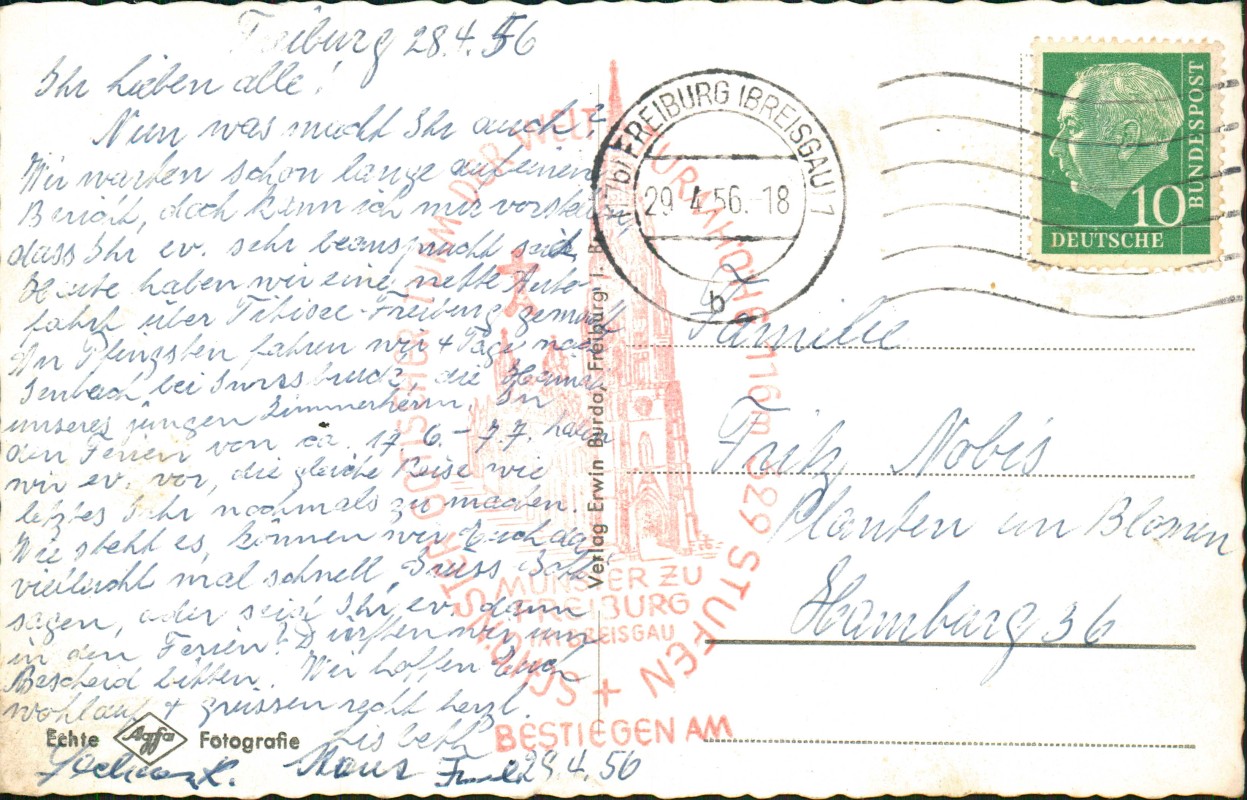 Freiburg 28.4.56
Ihr lieben alle!
Nun was macht Ihr auch?
Wir warten schon lange auf einen
Bericht, doch kann ich mir vorstell
dass Ihr ev. sehr beansprucht seid.
Heute haben wir eine nette Auto-
fahrt über Titisee-Freiburg gemacht
An Pfingsten fahren wir 4 Tage nach
bei Innsbruck, die Heimat
unseres jungen Zimmerherrn. In
den Ferien von ca. 17.6.-7.7. haben
wir ev. vor, die gleiche Reise wie
letztes Jahr nochmals zu machen.
Wie steht es, können wir Euch da
vielleicht mal schnell Grüss Gott
sagen, oder seid Ihr ev. dann
in den Ferien? Dürften wir um
Bescheid bitten. Wir hoffen Euch
wohlauf + grüssen recht herzl.
Hans
29.4.56
Echte Agfa Fotografie
Verlag Erwin Burda, Freiburg i. Br.
SCHÖNSTER GOTISCHER TURM DER WELT
TURMHÖHE 116m 329 STUFEN +
MÜNSTER ZU
FREIBURG
IM BREISGAU
BESTIEGEN AM
FREIBURG (BREISGAU) 1
29.4.56.-18
b
10
DEUTSCHE
BUNDESPOST
Familie
Fritz Nobis
Planten un Blomen
Hamburg 36